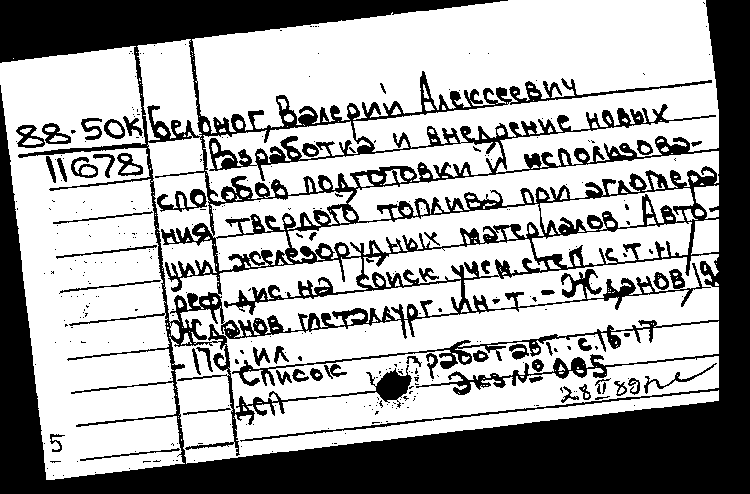 88-50К
11678
Белоног, Валерий Алексеевич
Разработка и внедрение новых
способов подготовки и использова-
ния твердого топлива при агломера
ции железорудных материалов: Авто-
реф. дис. на соиск. учен. степ. к.т.н.
Жданов. металлург. ин-т. - Жданов, 19
- 17с.: ил.
Список работ авт.: с.16-17
ДСП Экз № 005
28 II 89
5